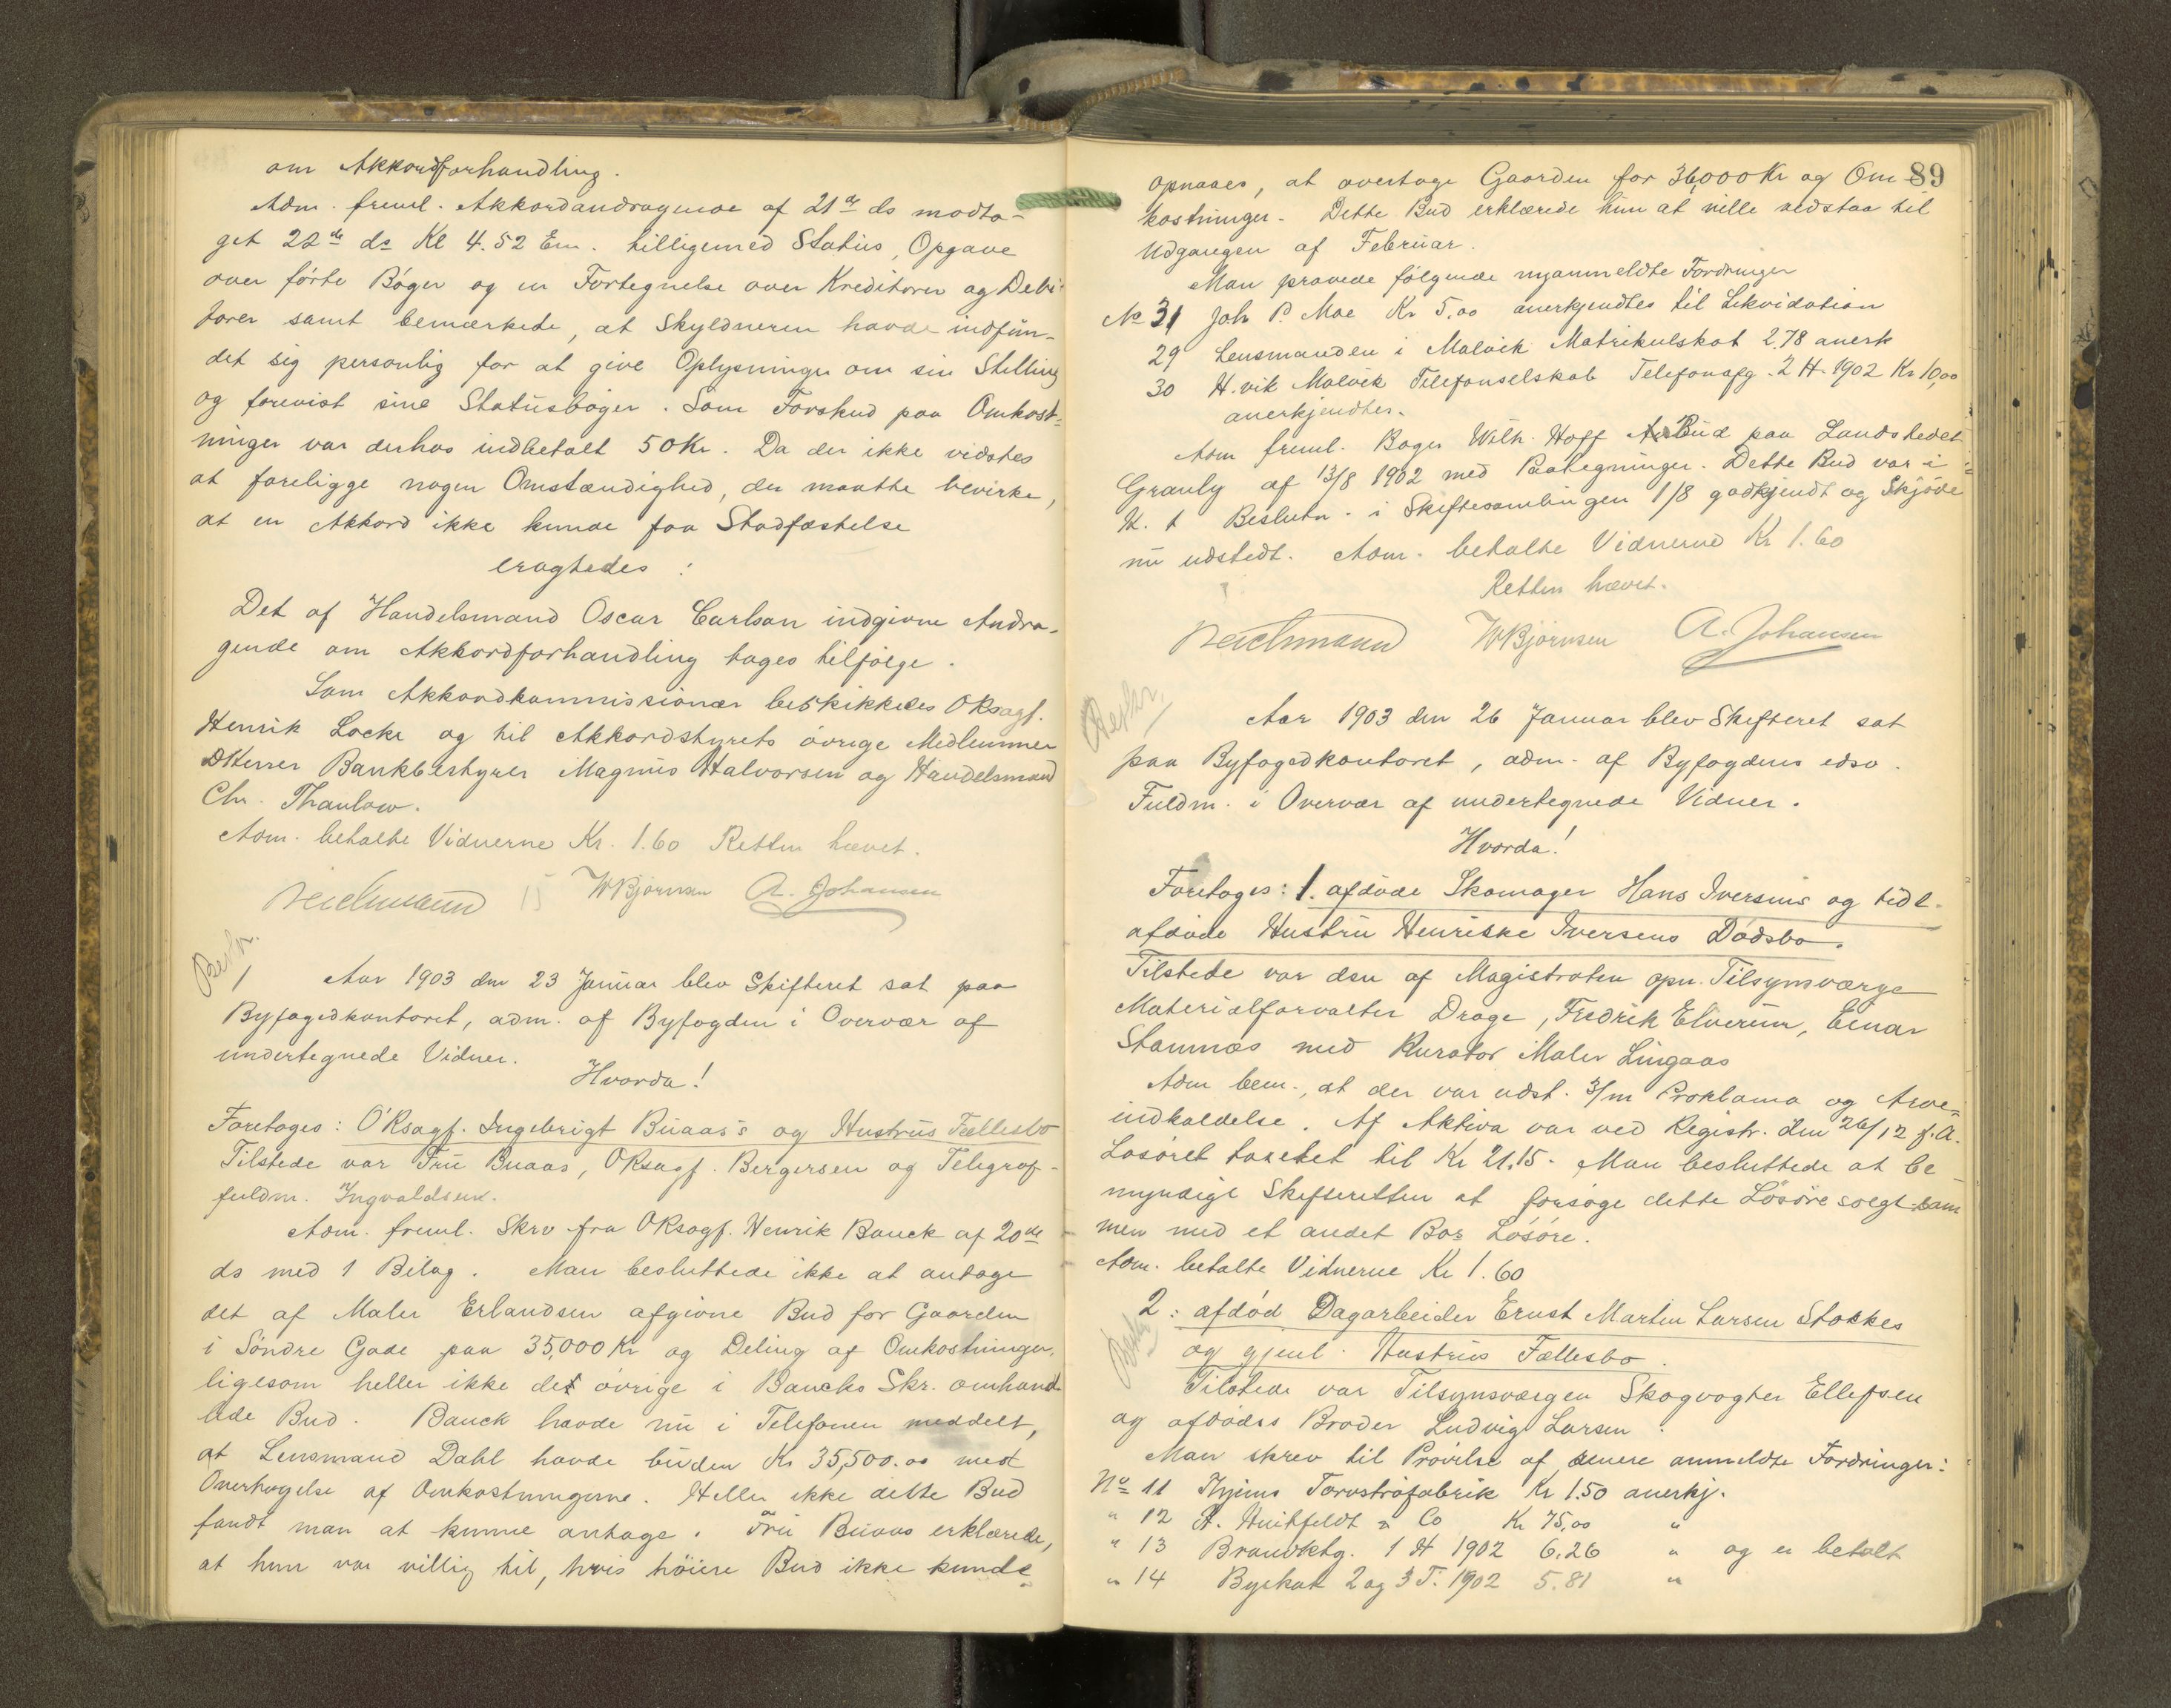 om Akkordforhandling.
Adm. freml. Akkordandragende af 21de ds modta-
get 22de ds Kl 4.52 Em. tilligemed Status, Opgave
over førte Bøger og en Fortegnelse over Kreditorer og Debi-
torer samt bemærkede, at Skyldneren havde indfun-
det sig personlig for at give Oplysninger om sin Stilling
og forevist sine Statusbøger. Som Forskud paa Omkost-
ninger var derhos indbetalt 50 Kr. Da der ikke vidstes
at foreligge nogen Omstændighed, der maatte bevirke,
at en Akkord ikke kunde faa Stadfæstelse
eragtedes:
Det af Handelsmand Oscar Carlson indgivne Andra-
gende om Akkordforhandling tages tilfølge.
Som Akkordkommissionær beskikkedes ORsagf.
Henrik Locke og til Akkordstyrets øvrige Medlemmer
DHerrer Bankbestyrer Magnus Halvorsen og Handelsmand
Chr. Thaulow.
Adm. betalte Vidnerne Kr. 1.60 Retten hævet.
Reichmann WBjørnsen A. Johansen
Aar 1903 den 23 Januar blev Skifteret sat paa
Byfogedkontoret, adm. af Byfogden i Overvær af
undertegnede Vidner.
Hvorda!
Foretoges: ORsagf. Ingebrigt Buaas's og Hustrus Fællesbo
Tilstede var Fru Buaas, ORsagf. Bergersen og Telegraf-
fuldm. Ingvaldsen.
Adm. freml. Skrv fra ORsagf. Henrik Bauck af 20de
ds med 1 Bilag. Man besluttede ikke at antage
det af Maler Erlandsen afgivne Bud for Gaarden
i Søndre Gade paa 35,000 Kr og Deling af Omkostninger,
ligesom heller ikke det øvrige i Baucks Skr. omhand
lede Bud. Bauck havde nu i Telefonen meddelt,
at Lensmand Dahl havde buden Kr 35,500.00 med
Overtagelse af Omkostningerne. Heller ikke dette Bud
fandt man at kunne antage. Fru Buaas erklærede,
at hun var villig til, hvis høiere Bud ikke kunde
89
opnaaes, at overtage Gaarden for 36,000 Kr og Om-
kostninger. Dette Bud erklærede hun at ville vedstaa til
Udgangen af Februar.
Man prøvede følgende nyanmeldte Fordringer
No 31 Joh P. Moe Kr 5.00 anerkjendtes til Likvidation
29 Lensmanden i Malvik Matrikulskat 2.78 anerk
30 H.vik Malvik Telefonselskab Telefonafg. 2 H. 1902 Kr 10,00
anerkjendtes.
Adm freml. Bager Wilh. Hoff Bud paa Landstedet
Granly af 13/8 1902 med Paategninger. Dette Bud var i
H. t Beslutn. i Skiftesamlingen 1/8 godkjendt og Skjøde
nu udstedt. Adm. betalte Vidnerne Kr 1.60
Retten hævet.
Reichmann WBjørnsen A. Johansen
Aar 1903 den 26 Januar blev Skifteret sat
paa Byfogedkontoret, adm. af Byfogdens edsv.
Fuldm. i Overvær af undertegnede Vidner.
Hvorda!
Foretoges: 1. afdøde Skomager Hans Iversens og tidl.
afdøde Hustru Henriske Iversens Dødsbo.
Tilstede var den af Magistraten opn. Tilsynsværge
Materialforvalter Drage, Fredrik Elverum, Einar
Stamnæs med Kurator Maler Lingaas
Adm bem., at der var udst. 3/m Proklama og Arve-
indkaldelse. Af Aktiva var ved Registr. den 26/12 f.A.
Løsøret taxeret til Kr 21.15. Man besluttede at be
myndige Skifteretten at forsøge dette Løsøre solgt sam
men med et andet Bos Løsøre.
Adm. betalte Vidnerne Kr 1.60
2: afdød Dagarbeider Ernst Martin Larsen Stokkes
og gjenl. Hustrus Fællesbo.
Tilstede var Tilsynsværgen Skogvogter Ellefsen
og afdødes Broder Ludvig Larsen.
Man skrev til Prøvelse af senere anmeldte Fordringer:
No 11 Thjems Torvstrøfabrik Kr 1.50 anerkj.
" 12 A. Huitfeldt & Co Kr 75,00 "
" 13 Brandktg. 1 H 1902 6.26 " og er betalt
" 14 Byskat 2 og 3 T. 1902 5.81 "